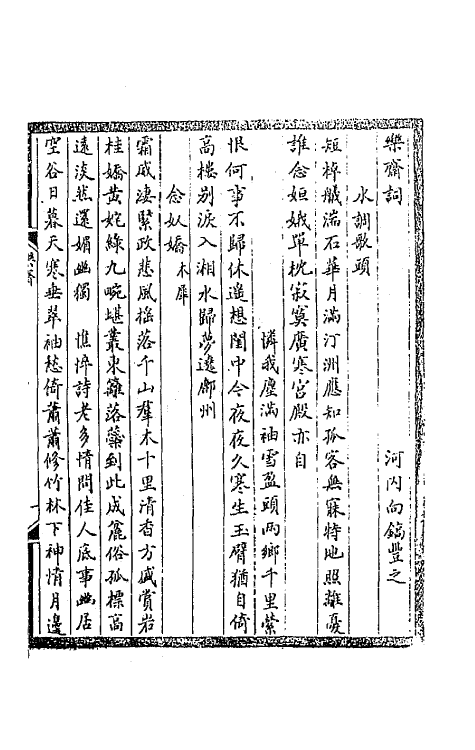 樂齋詞　河內向鎬豐之
水調歌頭
短棹艤湍石華月滿汀洲應知孤客無寐特地照離憂
誰念姮娥單枕寂寞廣寒宮殿亦自
憐我塵滿袖雪盈頭兩鄉千里縈
恨何事不歸休遙想閨中今夜夜久寒生玉臂猶自倚
高樓別淚入湘水歸夢遶鄜州
念奴嬌木犀
霜威淒緊政悲風搖落千山羣木十里清香方盛賞岩
桂嬌黃姹綠九畹堪叢東籬落蘂到此成麄俗孤標高
遠淡然還媚幽獨　憔悴詩老多情問佳人底事幽居
空谷日暮天寒垂翠袖愁倚蕭蕭修竹林下神情月邊
樂齋
一